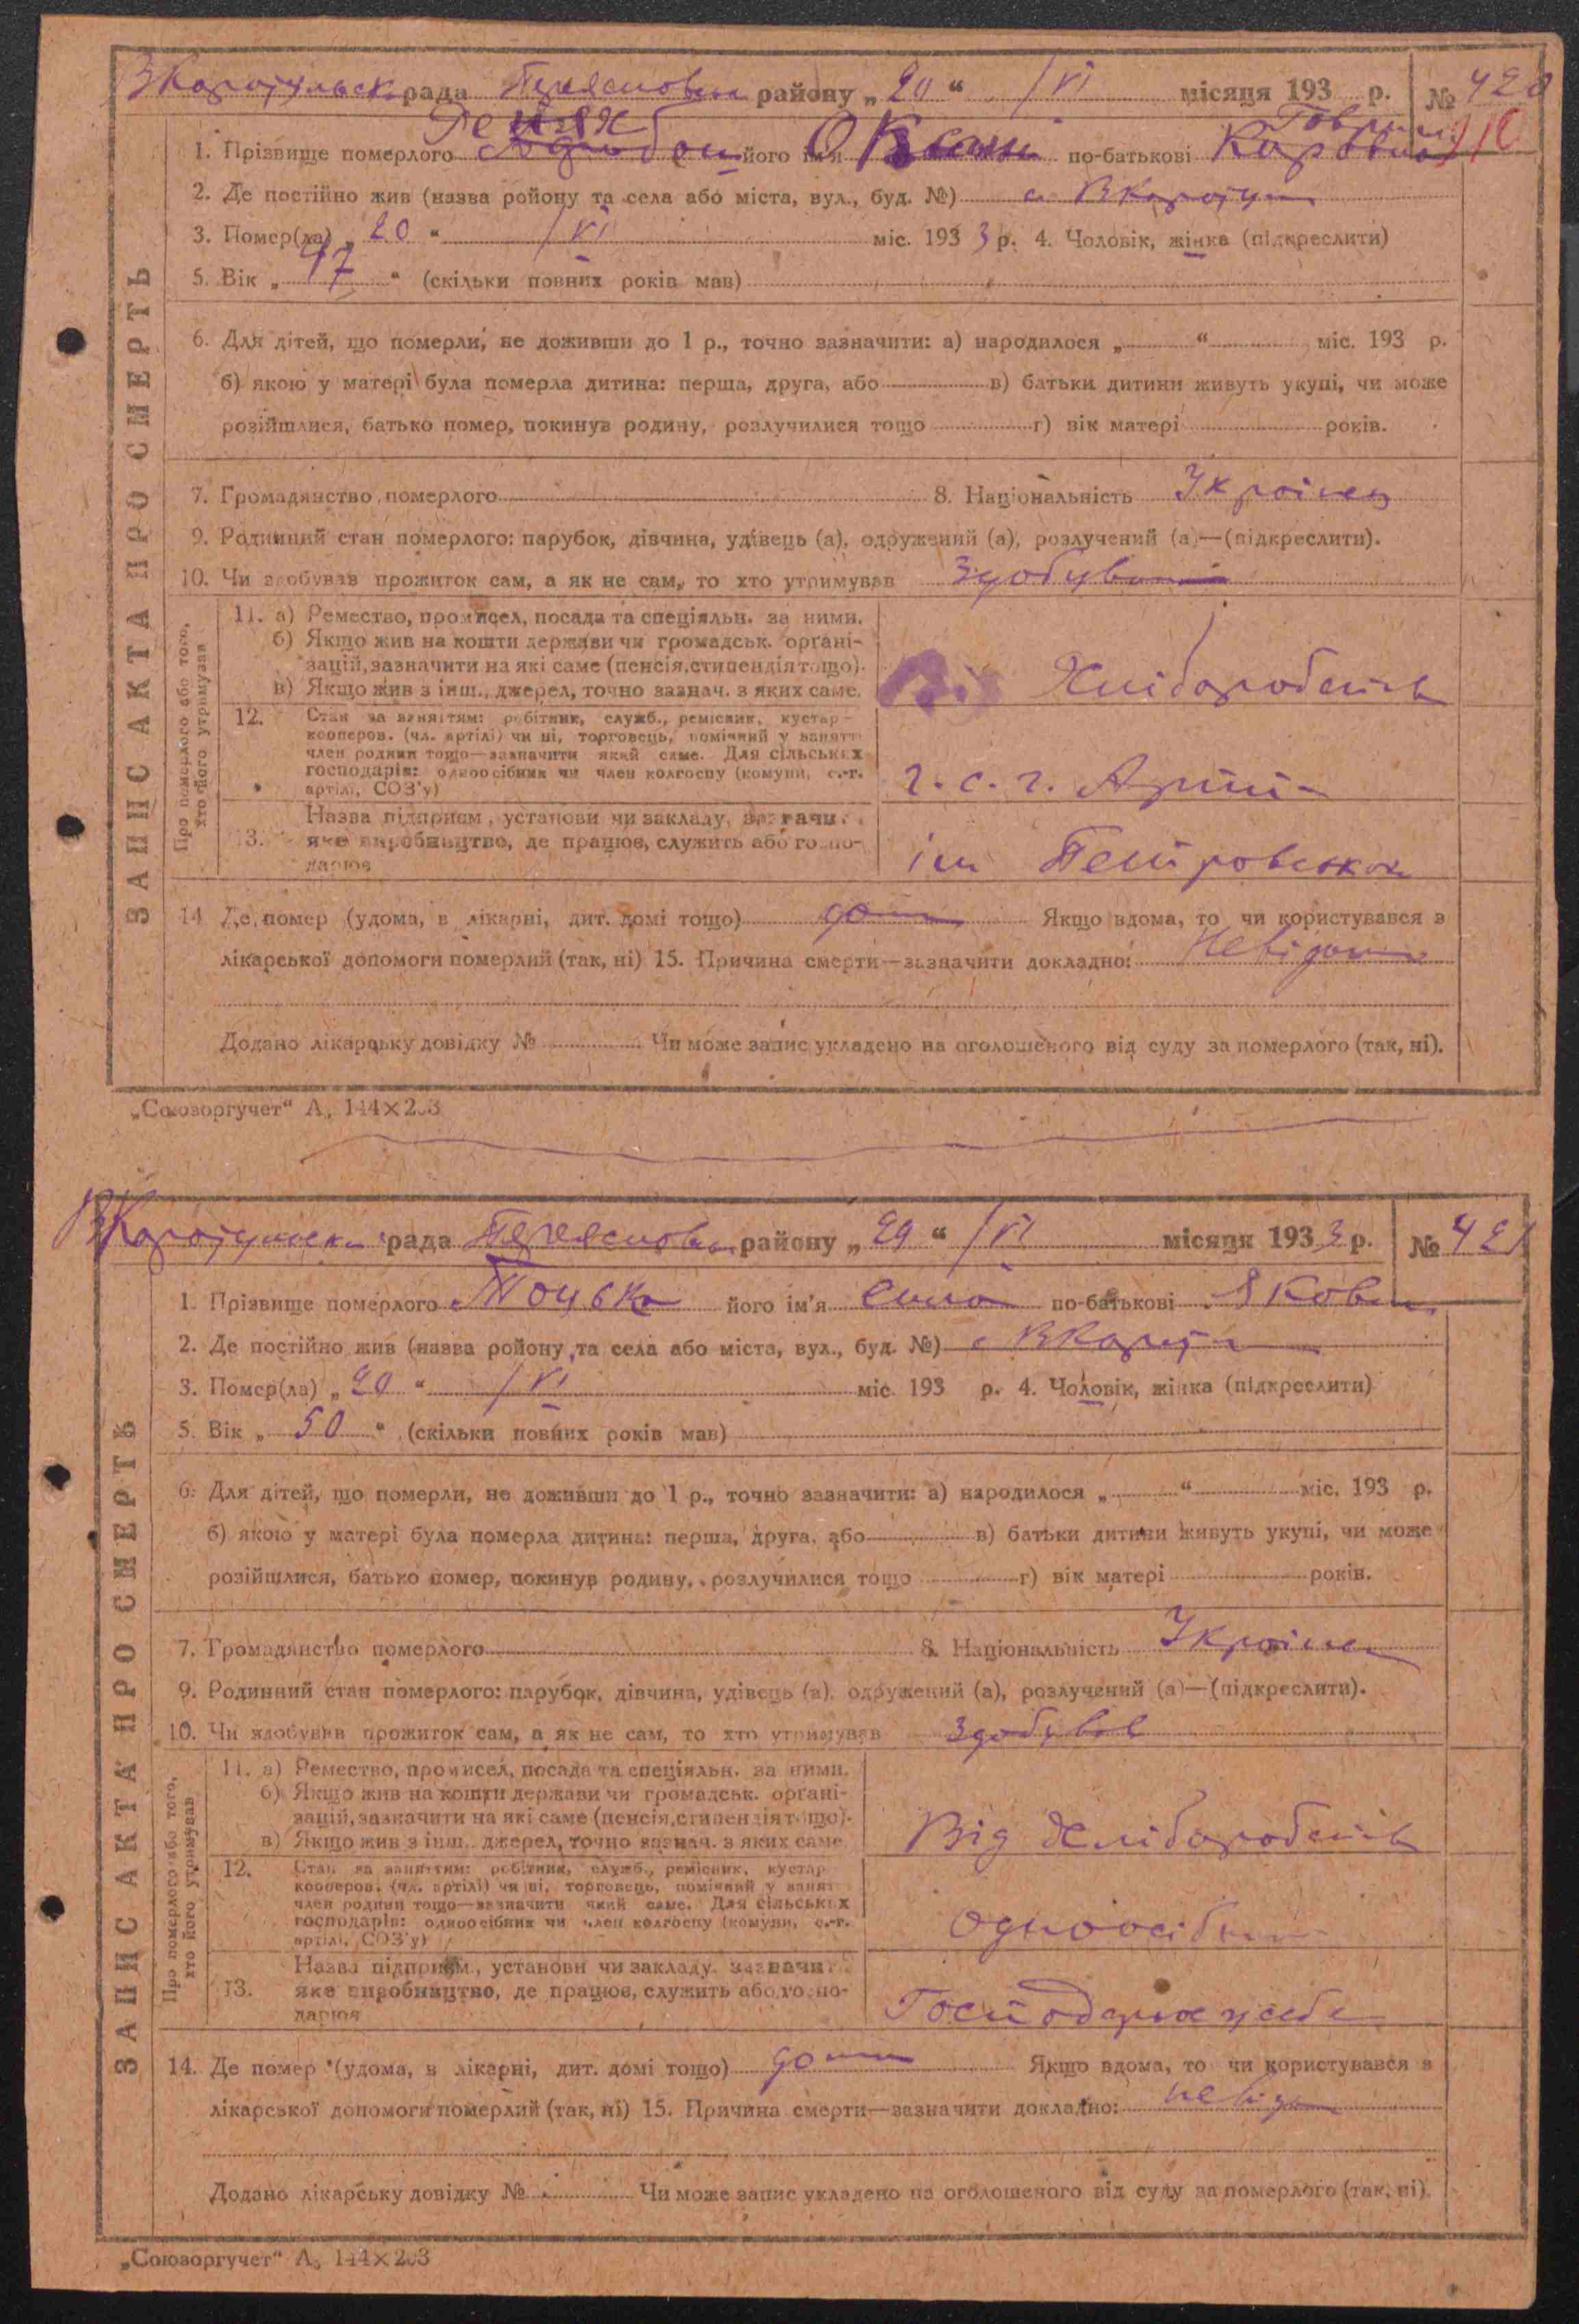 ВКаратульск рада Переяславськ району „ 20 “ /VI місяця 193 р. № 420
1. Прізвище померлого його ім'я Оксана по-батькові
2. Де постійно жив (назва ройону та села або міста, вул., буд. №) с ВКаратул
3. Помер(ла) „ 20 “ /VI міс. 193 3 р. 4. Чоловік, жінка (підкреслити)
5. Вік „ 47 “ (скільки повних років мав)
6. Для дітей, що померли, не доживши до 1 р., точно зазначити: а) народилося „ “ міс. 193 р.
б) якою у матері була померла дитина: перша, друга, або в) батьки дитини живуть укупі, чи може
розійшлися, батько помер, покинув родину, розлучилися тощо г) вік матері років.
7. Громадянство померлого 8. Національність Українец
9. Родинний стан померлого: парубок, дівчина, удівець (а), одружений (а), розлучений (а)—(підкреслити).
10. Чи здобував прожиток сам, а як не сам, то хто утримував Здобувала
ЗАПИС АКТА ПРО СМЕРТЬ
Про померлого або того, хто його утримував
11. а) Ремество, промисел, посада та спеціяльн. за ними.
б) Якщо жив на кошти держави чи громадськ. органі-
зацій, зазначити на які саме (пенсія, стипендія тощо).
в) Якщо жив з інш., джерел, точно зазнач. з яких саме.
Від Хліборобства
12. Стан за заняттям: робітник, служб., ремісник, кустар-
кооперов. (чл. артілі) чи ні, торговець, помічний у занятті
член родини тощо—зазначити який саме. Для сільських
господарів: одноосібник чи член колгоспу (комуни, с.-г.
артілі, СОЗ'у)
ч. с. г. Артілі
13. Назва підприєм., установи чи закладу, зазначи
яке виробництво, де працює, служить або госпо-
дарює
ім Петровського
14 Де помер (удома, в лікарні, дит. домі тощо) дома Якщо вдома, то чи користувався з
лікарської допомоги померлий (так, ні) 15. Причина смерти—зазначити докладно: Невідома
Додано лікарську довідку № Чи може запис укладено на оголошеного від суду за померлого (так, ні).
„Союзоргучет“ А₅ 144×203
ВКаратульськ рада Переяславськ району „ 20 “ /VI місяця 193 3 р. № 421
1. Прізвище померлого Моцька його ім'я Сила по-батькові Якович
2. Де постійно жив (назва ройону та села або міста, вул., буд. №) с ВКаратул
3. Помер(ла) „ 20 “ /VI міс. 193 р. 4. Чоловік, жінка (підкреслити)
5. Вік „ 50 “ (скільки повних років мав)
6. Для дітей, що померли, не доживши до 1 р., точно зазначити: а) народилося „ “ міс. 193 р.
б) якою у матері була померла дитина: перша, друга, або в) батьки дитини живуть укупі, чи може
розійшлися, батько помер, покинув родину, розлучилися тощо г) вік матері років.
7. Громадянство померлого 8. Національність Українец
9. Родинний стан померлого: парубок, дівчина, удівець (а), одружений (а), розлучений (а)—(підкреслити).
10. Чи здобував прожиток сам, а як не сам, то хто утримував Здобував
ЗАПИС АКТА ПРО СМЕРТЬ
Про померлого або того, хто його утримував
11. а) Ремество, промисел, посада та спеціяльн. за ними.
б) Якщо жив на кошти держави чи громадськ. органі-
зацій, зазначити на які саме (пенсія, стипендія тощо).
в) Якщо жив з інш., джерел, точно зазнач. з яких саме
Від Хліборобства
12. Стан за заняттям: робітник, служб., ремісник, кустар
кооперов. (чл. артілі) чи ні, торговець, помічний у занят
член родини тощо—зазначити який саме. Для сільських
господарів: одноосібник чи член колгоспу (комуни, с.-г.
артілі, СОЗ'у)
Одноосібник
13. Назва підприєм., установи чи закладу, зазначи
яке виробництво, де працює, служить або госпо-
дарює
Господарює у себе
14. Де помер (удома, в лікарні, дит. домі тощо) дома Якщо вдома, то чи користувався з
лікарської допомоги померлий (так, ні) 15. Причина смерти—зазначити докладно: невідома
Додано лікарську довідку № Чи може запис укладено на оголошеного від суду за померлого (так, ні).
„Союзоргучет“ А₅ 144×203